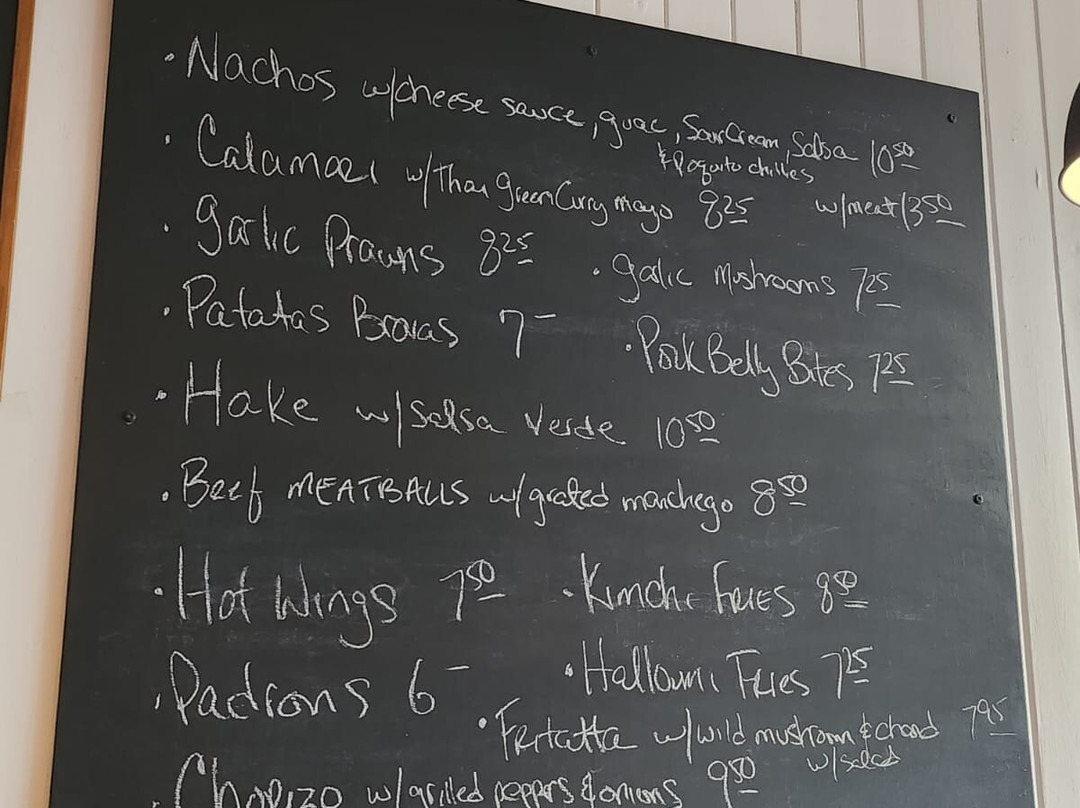 · Nachos w/cheese sauce, guac, Sour Cream, Salsa 10 50
& Roquito chillies
· Calamari w/Thai Green Curry mayo 8 25 w/meat/13 50
· Garlic Prawns 8 25
· Garlic Mushrooms 7 25
· Patatas Bravas 7 –
· Pork Belly Bites 7 25
· Hake w/Salsa Verde 10 50
· Beef MEATBALLS w/grated manchego 8 50
· Hot Wings 7 50
· Kimchi Fries 8 50
· Padrons 6 –
· Halloumi Fries 7 25
· Fritatta w/wild mushroom & chard 7 95
w/salad
Chorizo w/grilled peppers & onions 9 50